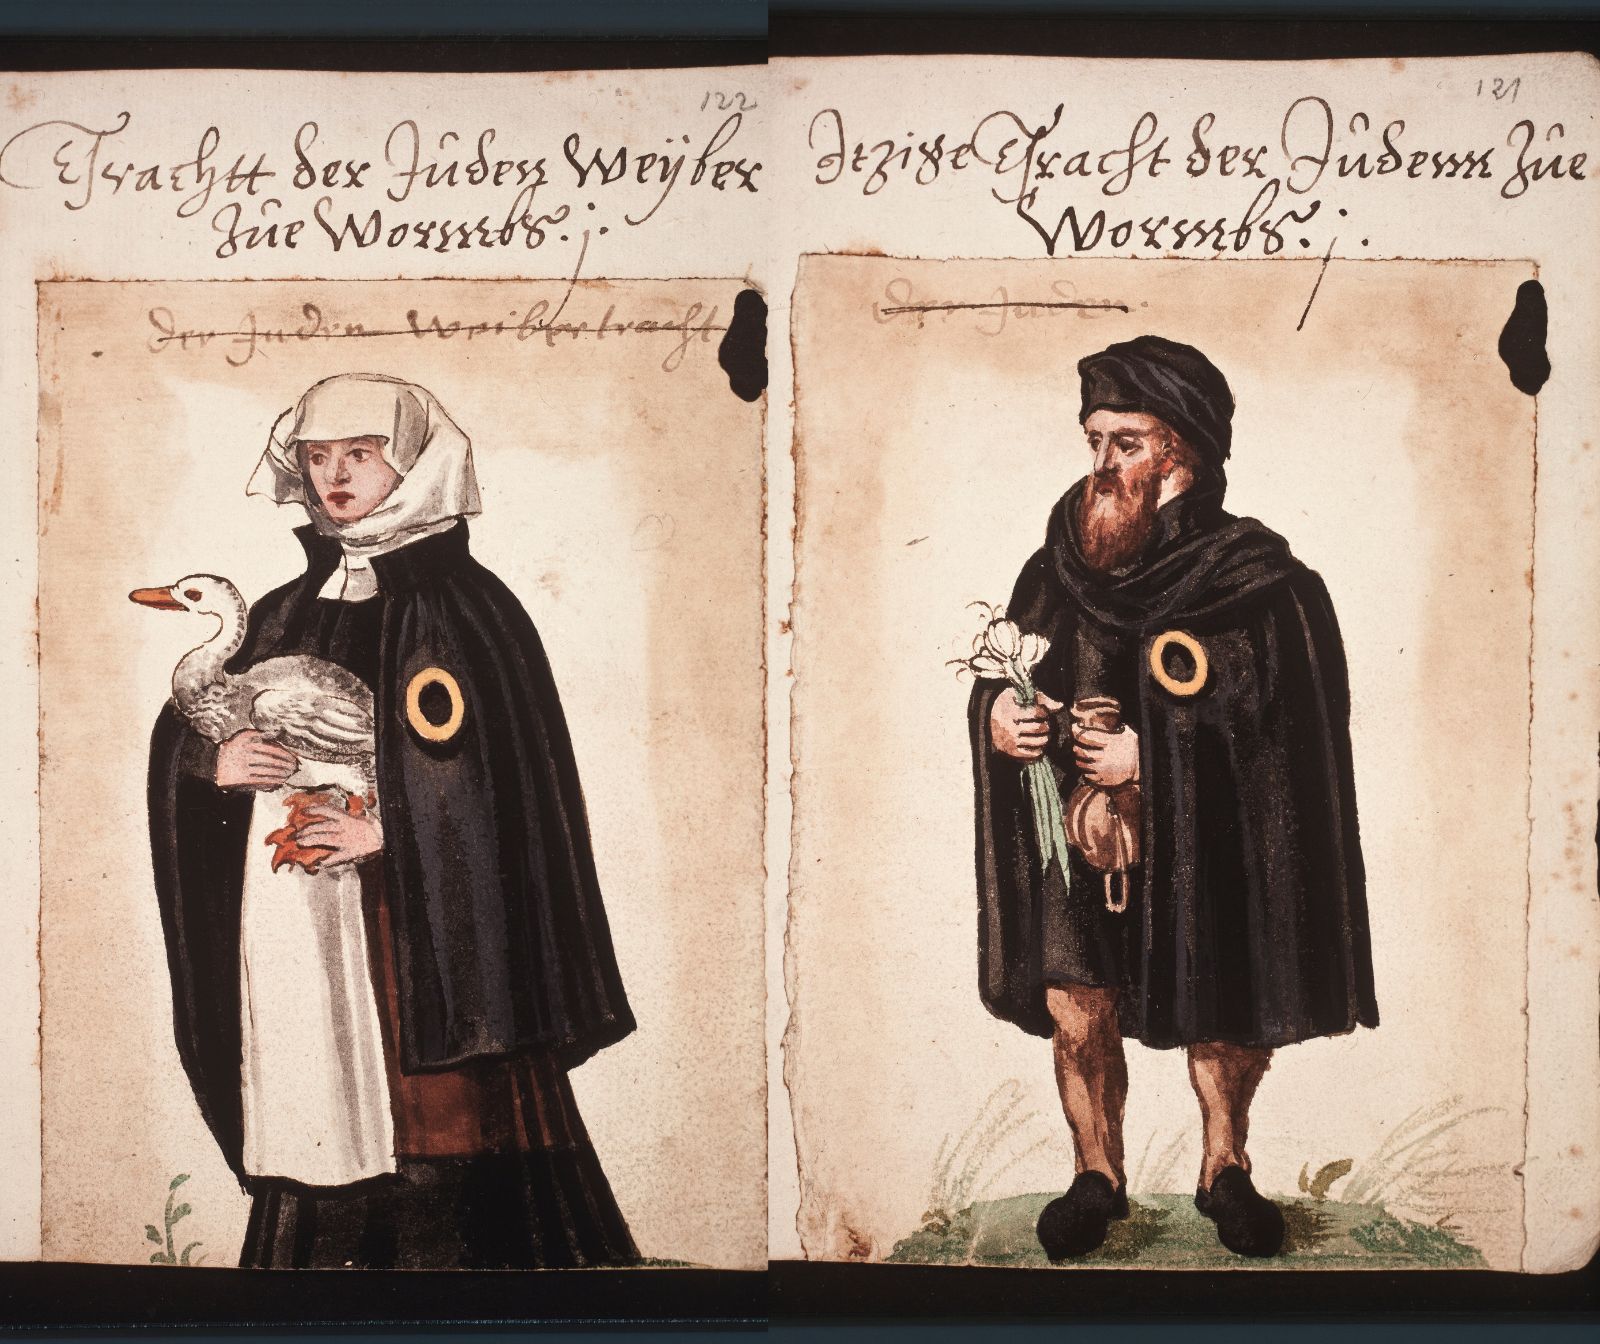 122
Trachtt der Jüden Weÿber
Zue Wormbs.
der Juden Weibertracht
121
Jtzige Tracht der Jüdenn Zue
Wormbs.
der Juden.